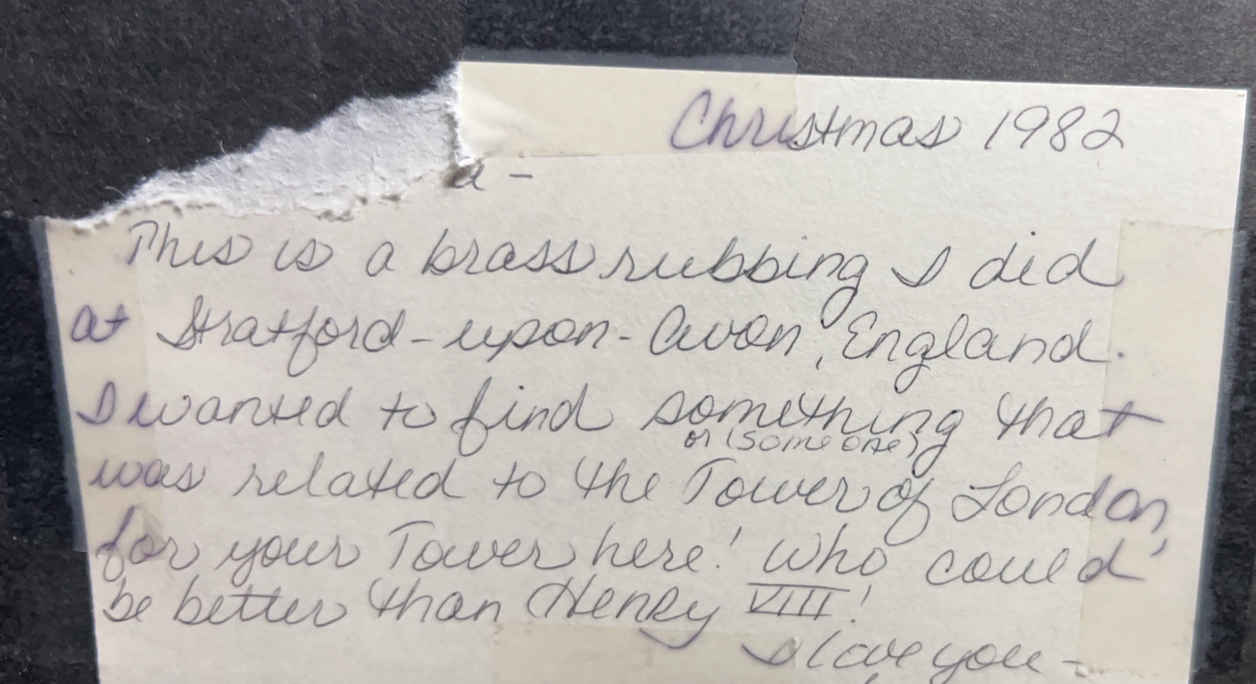 Christmas 1982
a -
This is a brass rubbing I did
at Stratford-upon-Avon, England.
I wanted to find something that
or (someone)
was related to the Tower of London
for your Tower here! Who could
be better than Henry VIII!
I love you -